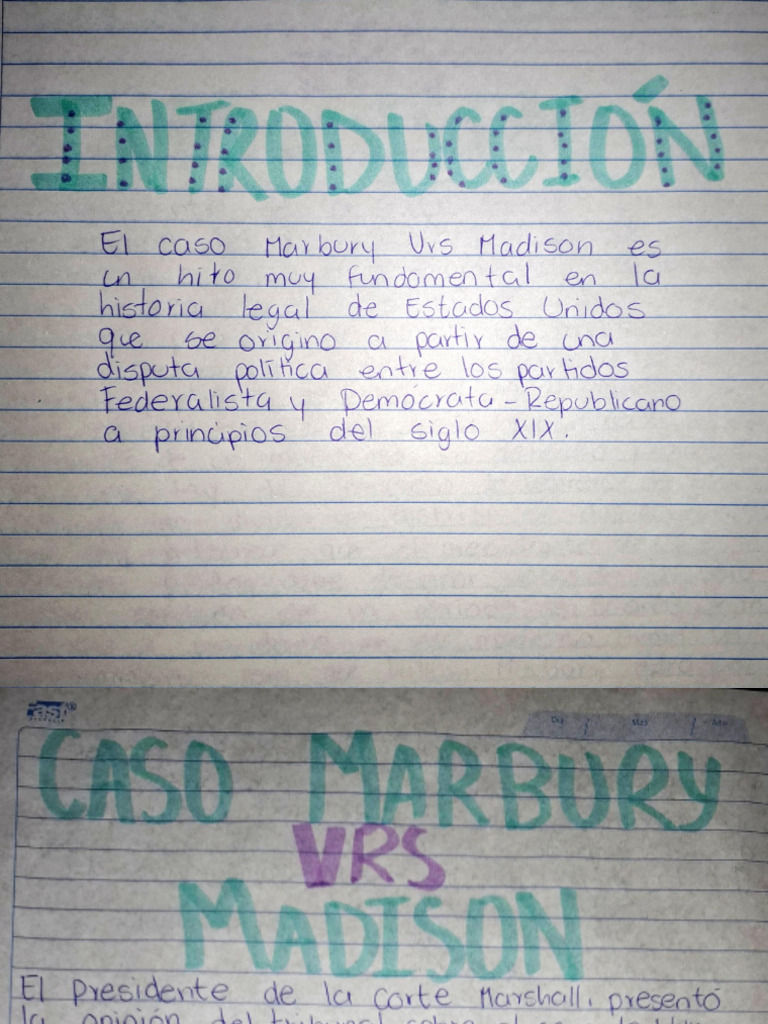 INTRODUCCIÓN
El caso Marbury Vrs Madison es
un hito muy fundamental en la
historia legal de Estados Unidos
que se origino a partir de una
disputa política entre los partidos
Federalista y Demócrata-Republicano
a principios del siglo XIX.
CASO MARBURY
VRS
MADISON
El Presidente de la Corte Marshall, presentó
la opinión del tribunal sobre el